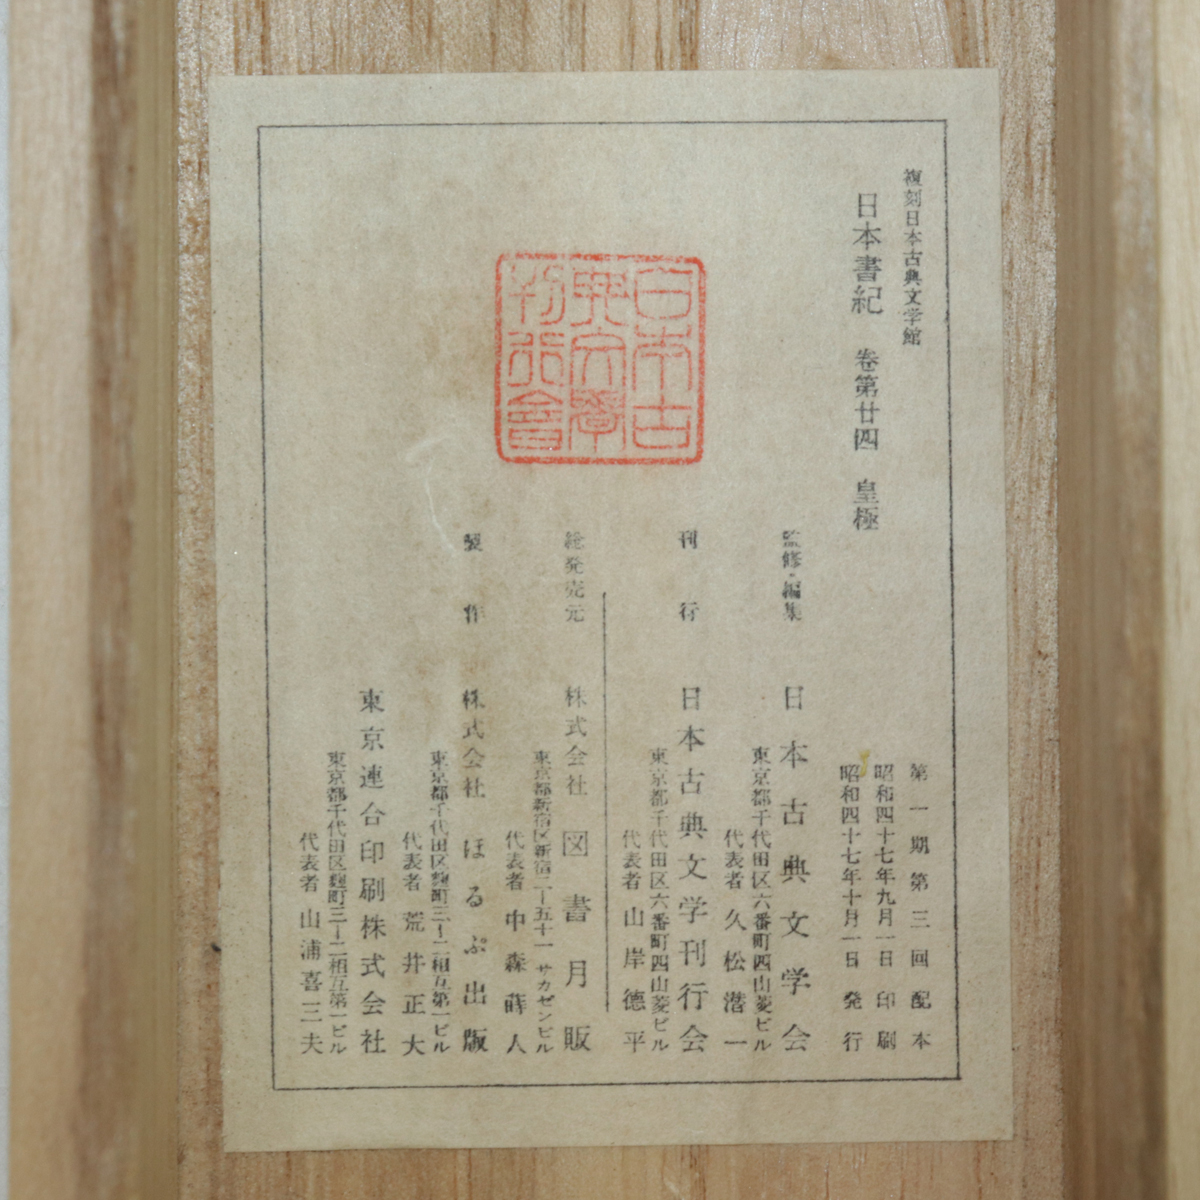 復刻日本古典文学館
日本書紀 巻第廿四 皇極
第一期第三回配本
昭和四十七年九月一日 印刷
昭和四十七年十月一日 発行
監修・編集 日本古典文学会
東京都千代田区六番町四山菱ビル
代表者 久松潜一
刊行 日本古典文学刊行会
東京都千代田区六番町四山菱ビル
代表者 山岸徳平
総発売元 株式会社 図書月販
東京都新宿区新宿二ー五十一 サカゼンビル
代表者 中森蒔人
製作 株式会社 ほるぷ出版
東京都千代田区麹町三ー二相互第一ビル
代表者 荒井正大
東京連合印刷株式会社
東京都千代田区麹町三ー二相互第一ビル
代表者 山浦喜三夫
日本古
典文學
刊行會